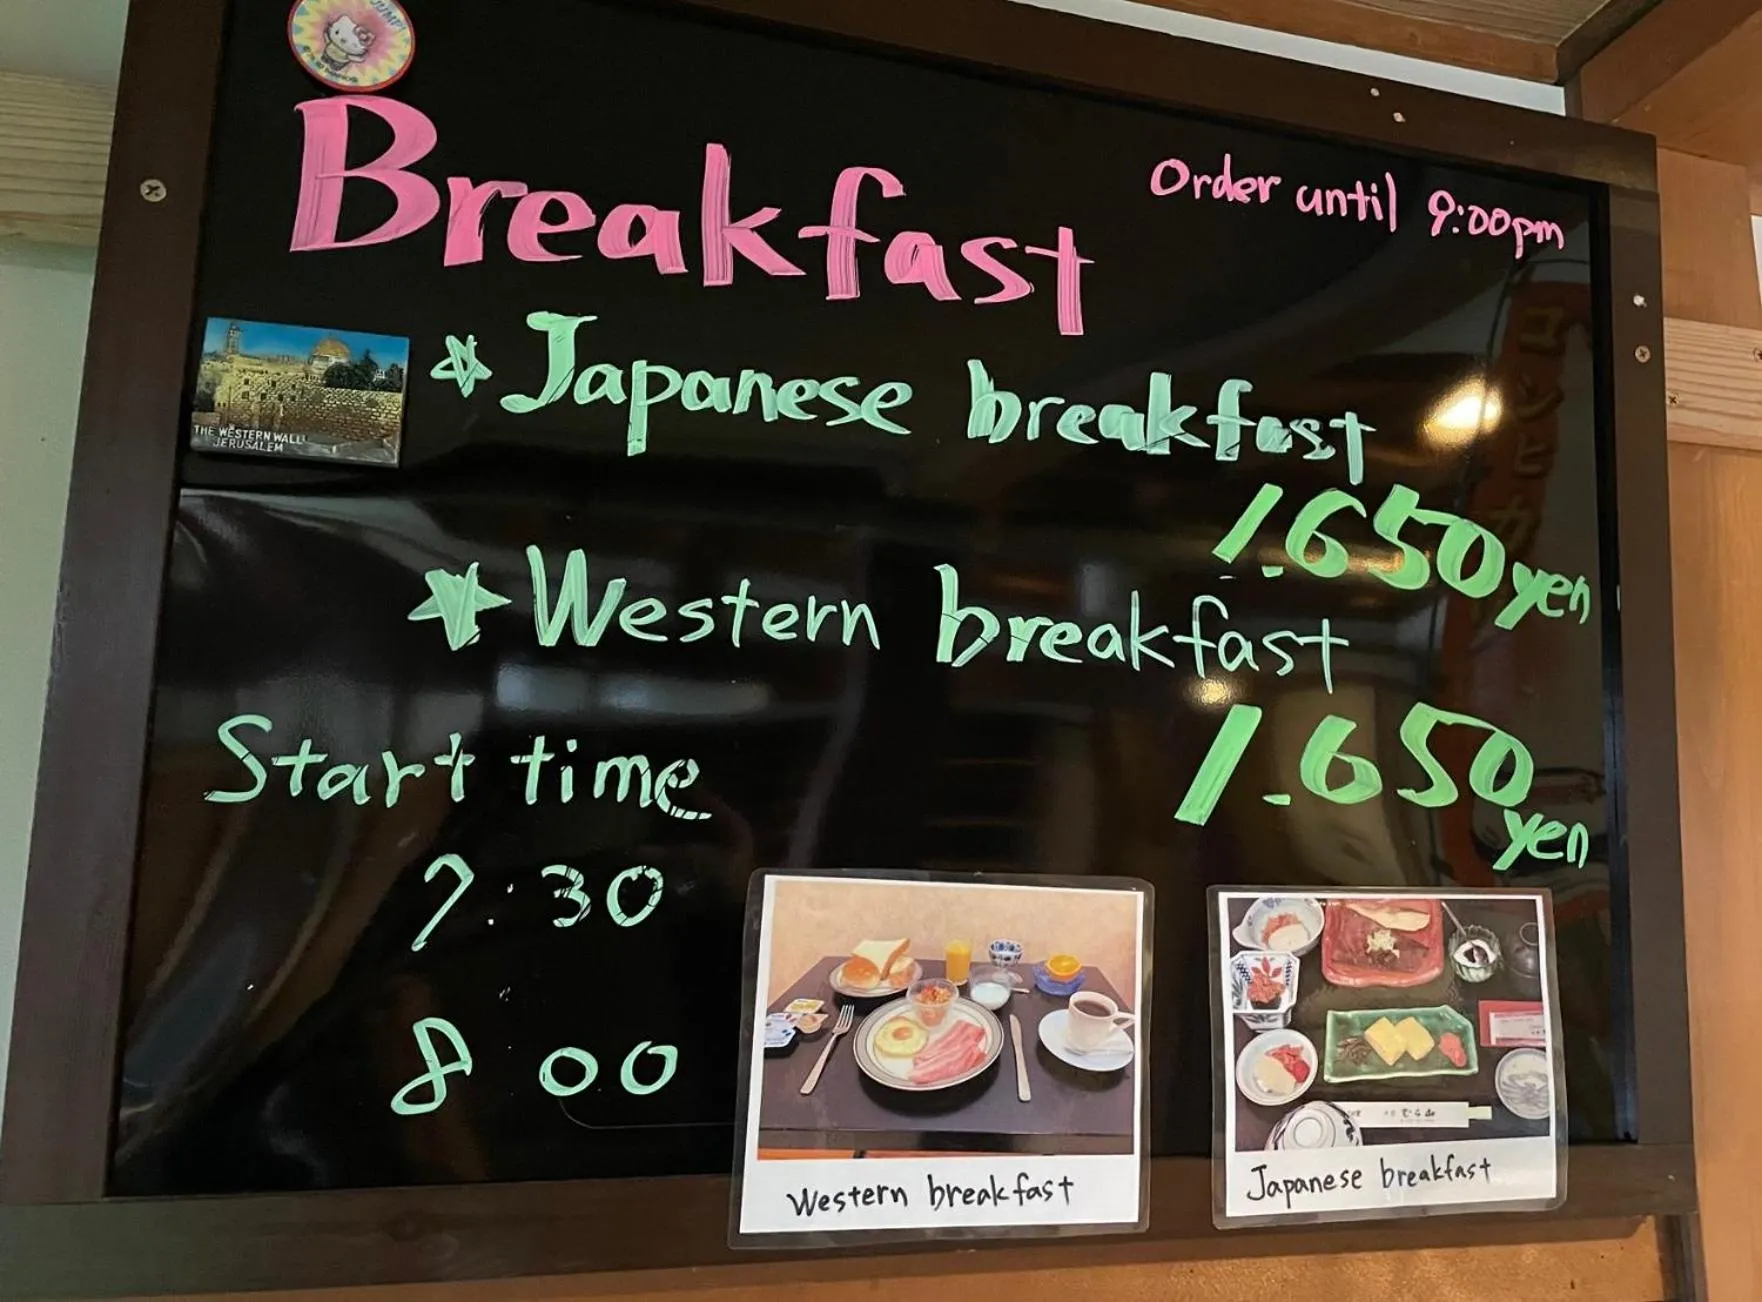 JUMP!
Breakfast
Order until 9:00pm
THE WESTERN WALL
JERUSALEM
☆Japanese breakfast
1.650yen
★Western breakfast
1.650
yen
Start time
7:30
8:00
Western breakfast
Japanese breakfast